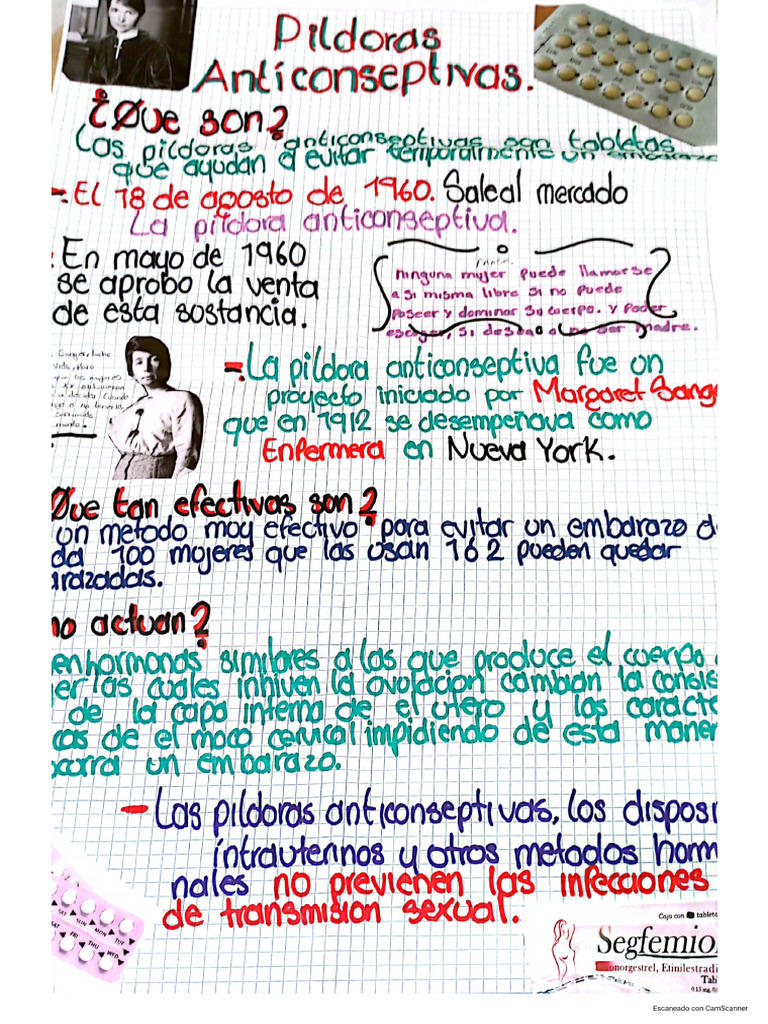 Pildoras
Anticonseptivas.
¿Que son?
Las pildoras anticonseptivas son tabletas
que ayudan a evitar temporalmente un embarazo
-. El 18 de agosto de 1960. Saleal mercado
La pildora anticonseptiva.
: En mayo de 1960
se aprobo la venta
de esta sostancia.
Frase.
ninguna mujer puede llamarse
a si misma libre si no puede
poseer y dominar su cuerpo. y poder
escoger, si desea o no ser madre.
Sanger, lucho
-. La pildora anticonseptiva fue un
proyecto iniciado por Margaret Sang
que en 1912 se desempeñava como
Enfermera en Nueva York.
Que tan efectivas son?
un metodo muy efectivo para evitar un embarazo d
da 100 mujeres que las usan 1 ó 2 pueden quedar
arazadas.
mo actuan?
en hormonas similares a las que produce el cuerpo
er las cuales inhiven la ovulacion cambian la consis
de la capa interna de el utero y las caracte
cas de el moco cervical impidiendo de esta maner
ocurra un embarazo.
- Las pildoras anticonseptivas, los disposi
intrauterinos y otros metodos horm
nales no previenen las infecciones
de transmision sexual.
SAT SUN MON TUE
WED THU FRI
Caja con tableta
Segfemio
onorgestrel, Etinilestradi
Tab
0.15 mg, 0.0
Escaneado con CamScanner